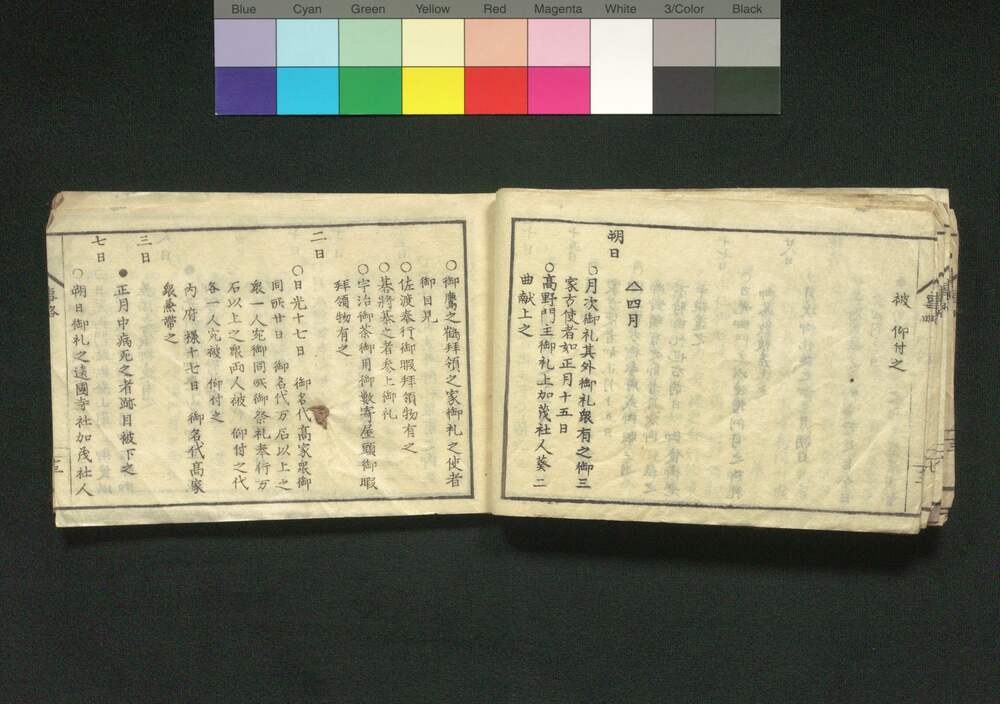 Blue Cyan Green Yellow Red Magenta White 3/Color Black
被 仰付之
四月
朔日
○月次御礼其外御礼衆有之御三
家古使者如正月十五日
○高野門主御礼上加茂社人葵二
曲献上之
○御鷹之鶴拝領之家御礼之使者
御目見
○佐渡奉行御暇拝領物有之
○碁将碁之者参上御礼
○宇治御茶御用御数寄屋頭御暇
拝領物有之
二日
○日光十七日 御名代高家衆御
同所廿日 御名代万石以上之
衆一人宛御同所御祭礼奉行万
石以上之衆両人被 仰付之代
各一人宛被 仰付之
内府様十七日 御名代高家
衆兼帯之
三日
●正月中病死之者跡目被下之
七日
○朔日御礼之遠国寺社加茂社人